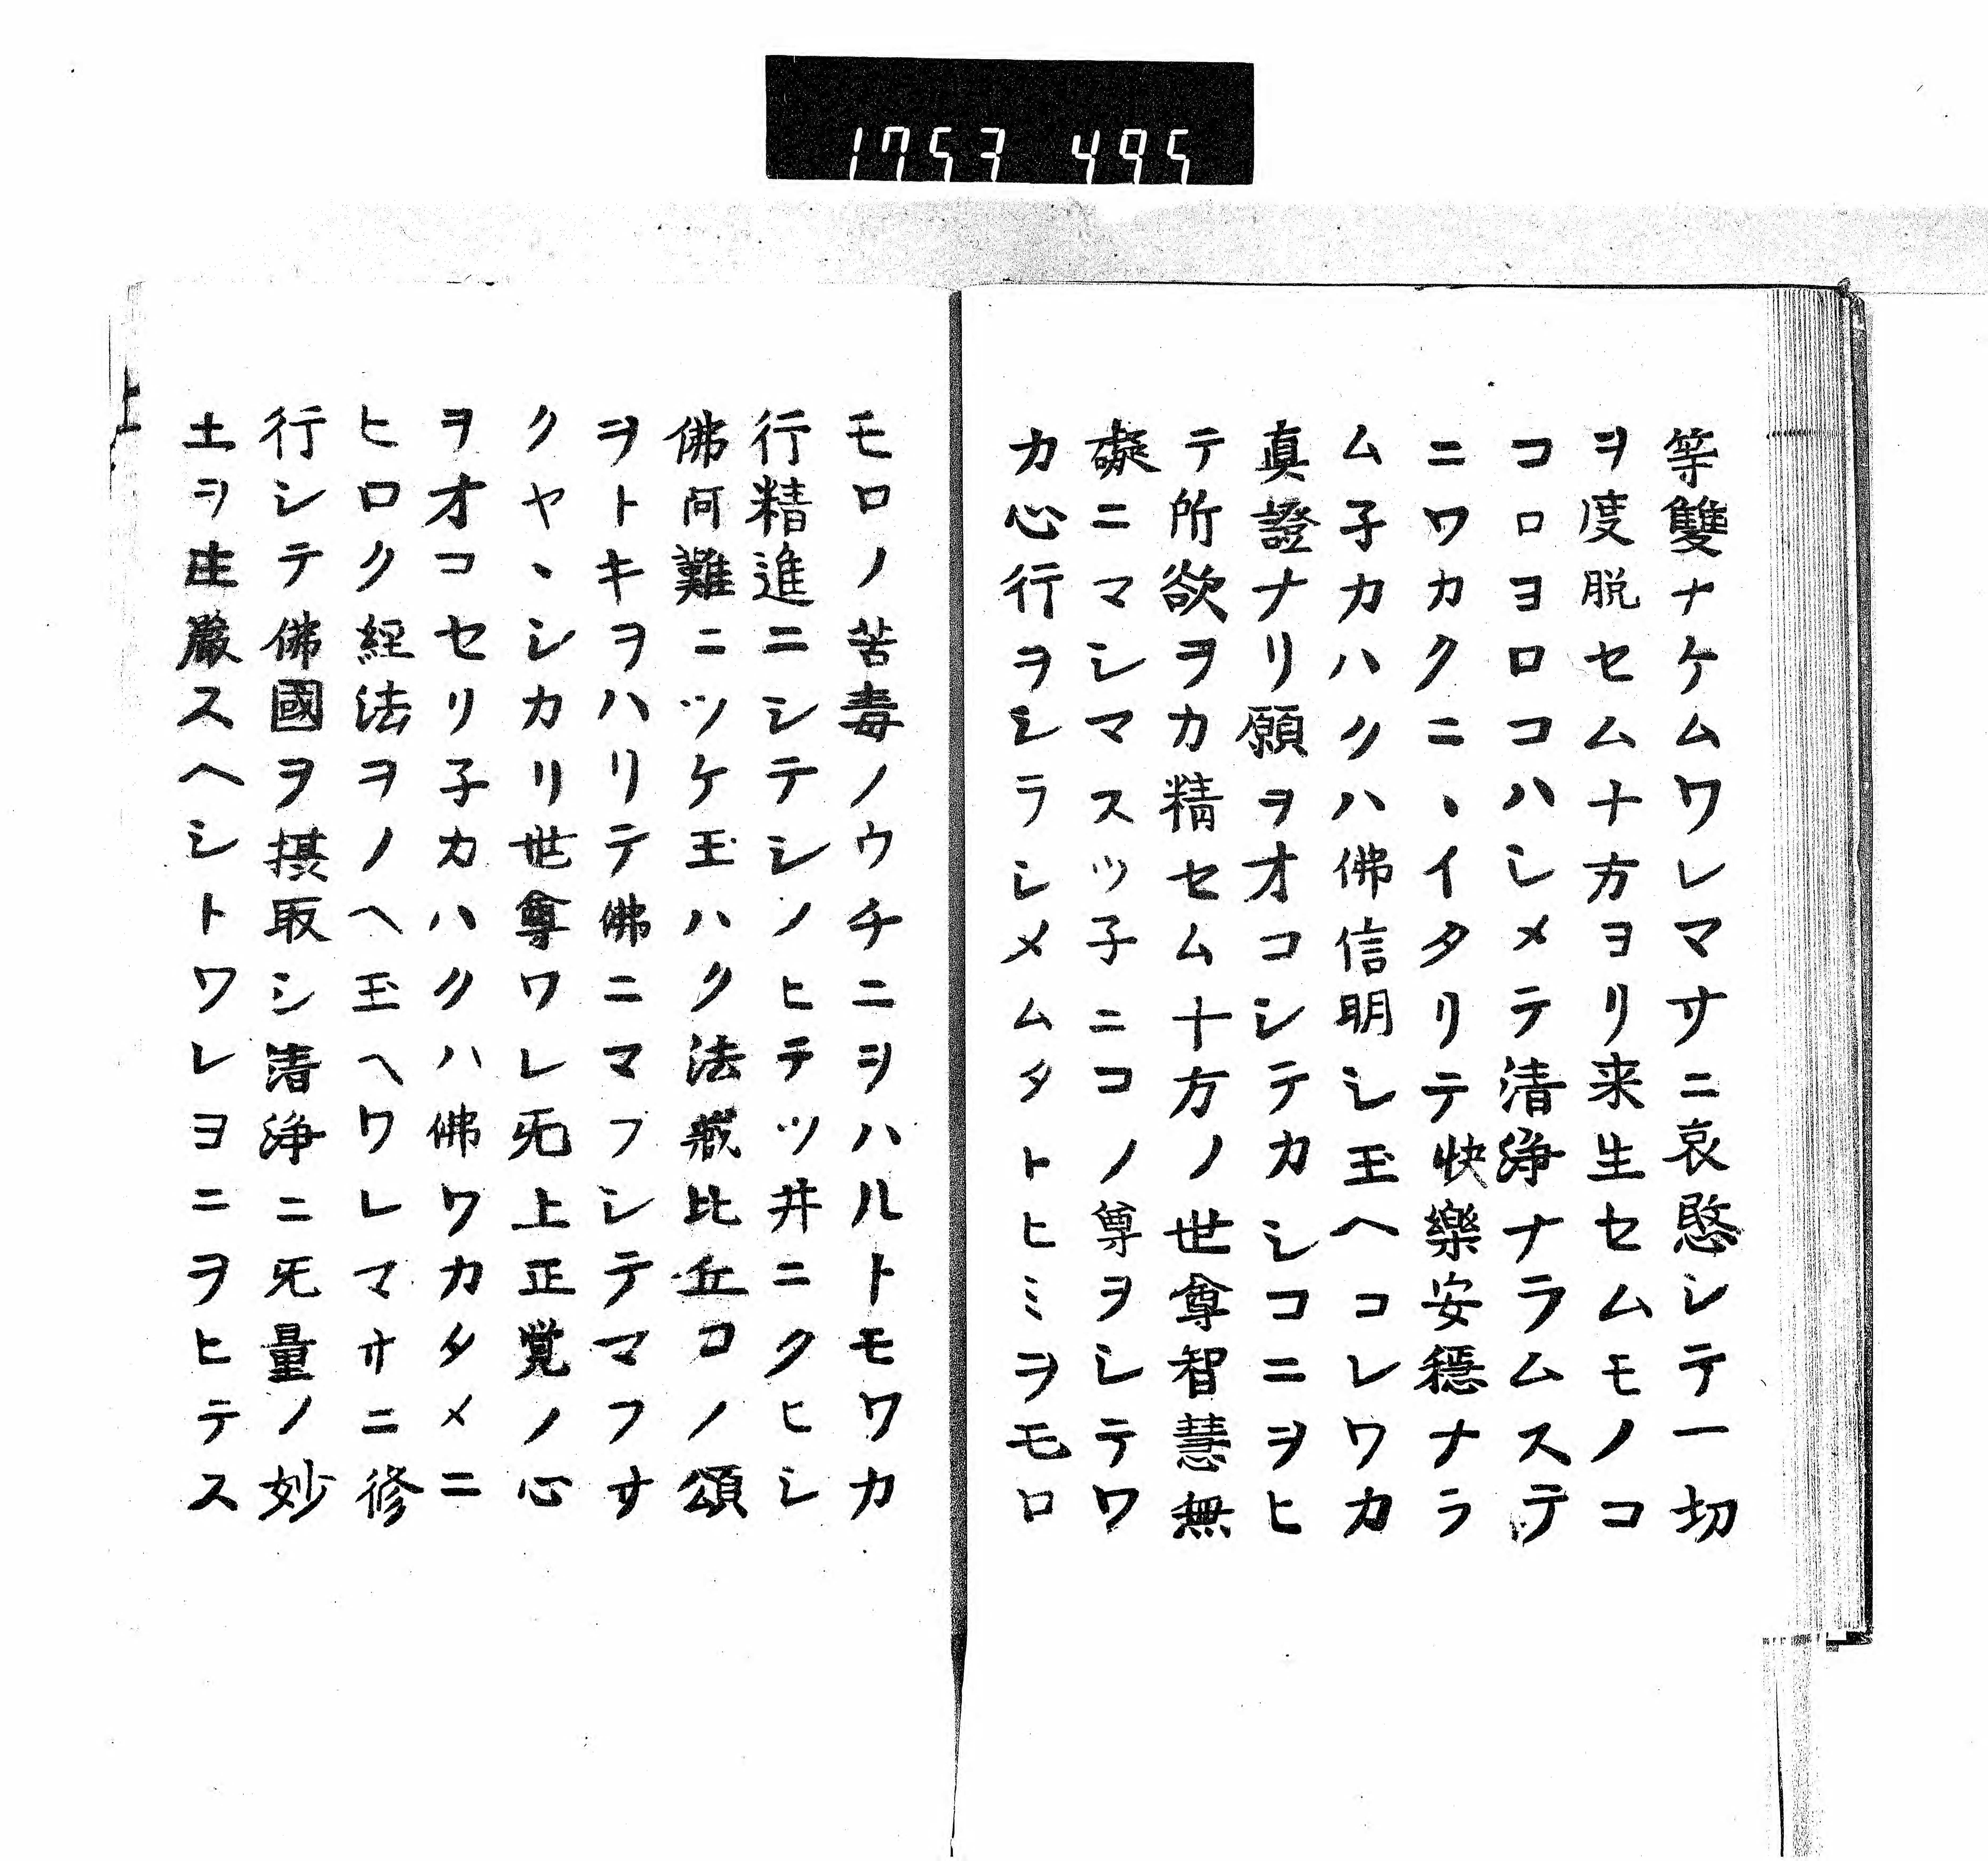 1753 495
等雙ナケムワレマサニ哀愍シテ一切
ヲ度脱セム十方ヨリ来生セムモノコ
コロヨロコハシメテ清浄ナラムステ
ニワカクニヽイタリテ快樂安穏ナラ
ム子カハクハ佛信明シ玉ヘコレワカ
真證ナリ願ヲオコシテカシコニヲヒ
テ所欲ヲカ精セム十方ノ世尊智慧無
礙ニマシマスツ子ニコノ尊ヲシテワ
カ心行ヲシラシメムタトヒミヲモロ
モロノ苦毒ノウチニヲハルトモワカ
行精進ニシテシノヒテツ井ニクヒシ
佛阿難ニツケ玉ハク法蔵比丘コノ頌
ヲトキヲハリテ佛ニマフシテマフサ
クヤヽシカリ世尊ワレ旡上正覚ノ心
ヲオコセリ子カハクハ佛ワカタメニ
ヒロク経法ヲノヘ玉ヘワレマサニ修
行シテ佛國ヲ摂取シ清浄ニ旡量ノ妙
土ヲ庄厳スヘシトワレヨニヲヒテス
上